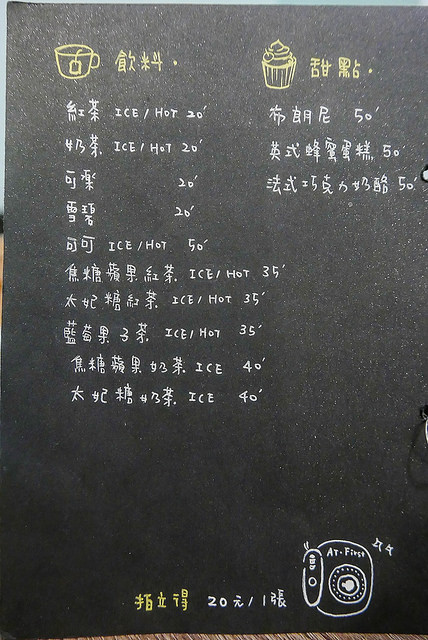 飲料.
紅茶 ICE/HOT 20'
奶茶. ICE/HOT 20'
可樂 20'
雪碧 20'
可可 ICE/HOT 50'
焦糖蘋果紅茶. ICE/HOT 35'
太妃糖紅茶. ICE/HOT 35'
藍莓果子茶. ICE/HOT 35'
焦糖蘋果奶茶. ICE 40'
太妃糖奶茶. ICE 40'
甜點.
布朗尼 50'
英式蜂蜜蛋糕. 50'
法式巧克力奶酪 50'
拍立得 20元/1張
AT.First